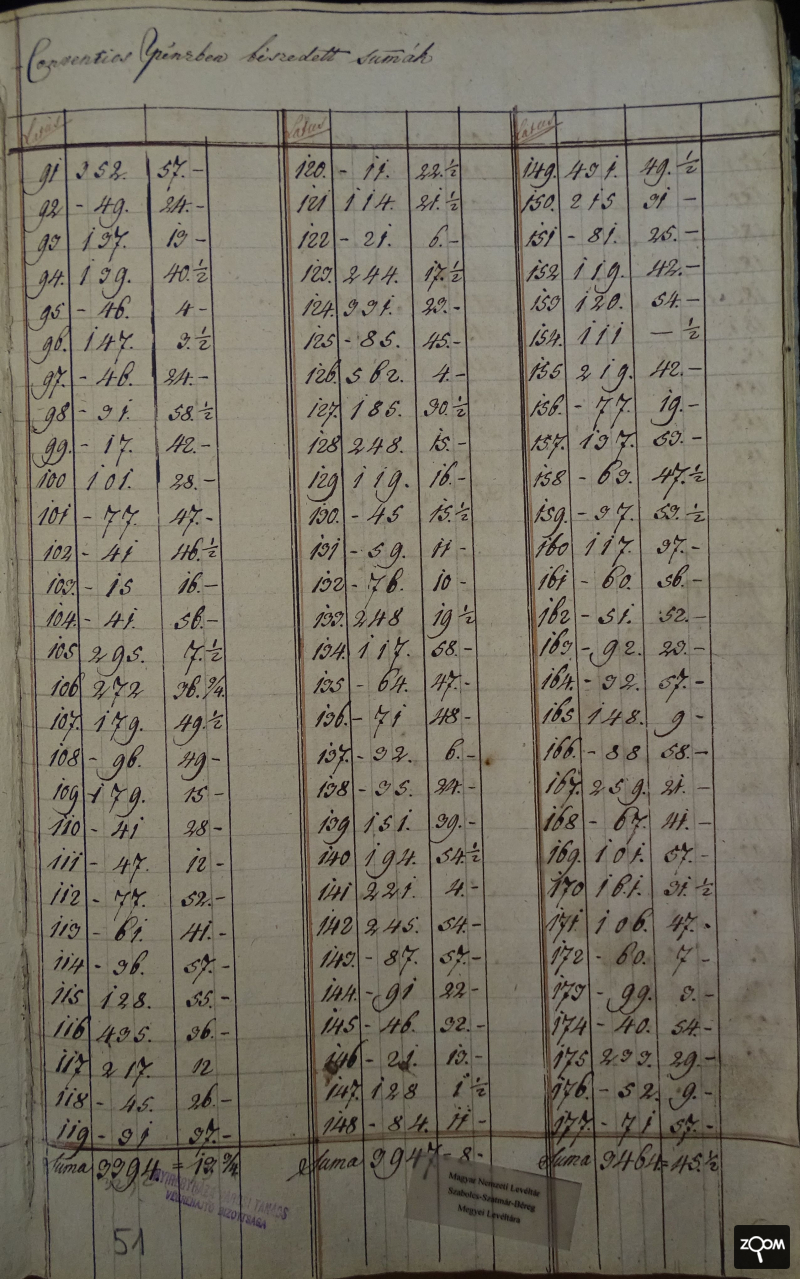 Conventios Pénzben beszedett sumák
Latus
91 352. 57.-
92 - 49. 24.-
93 137. 13 -
94. 139. 40.½
95 - 46. 4 -
96. 147. 3.½
97. - 46. 24.-
98 - 31. 58.½
99. - 17. 42.-
100 101. 28.-
101 - 77 47.-
102 - 41 46.½
103. - 15 16.-
104. - 41. 56.-
105 295. 7.½
106 272 36.¾
107. 179. 49.½
108 - 96. 49 -
109 179. 15 -
110 - 41 28 -
111 - 47. 12 -
112 - 77. 52.-
113 - 61. 41.-
114 - 36. 57.-
115 128. 55.-
116 435. 36.-
117 217. 12
118 - 45. 26.-
119 - 31 37.-
Suma 3394 = 13.¾
Latus
120. - 11. 22.½
121 114. 21.½
122 - 21. 6.-
123. 244. 17.½
124. 331. 23.-
125 - 85. 45.-
126. 562. 4.-
127. 185. 30.½
128 248. 15.-
129 119. 16.-
130. - 45 15.½
131 - 59. 11 -
132 - 76. 10 -
133. 248 19½
134. 117. 58.-
135 - 64. 47.-
136. - 71 48 -
137. - 32. 6.-
138 - 35. 24.-
139 151. 39.-
140 194. 54½
141 221. 4.-
142 245. 54.-
143. - 87. 57.-
144. - 91 22 -
145 - 46. 32.-
146 - 21. 13.-
147. 128 1½
148 - 84. 11 -
Suma 3947 = 8 -
Latus
149. 431. 49.½
150. 215 31 -
151 - 81. 25.-
152 119. 42.-
153 120. 54.-
154. 111 - ½
155 219. 42.-
156. - 77. 19.-
157. 137. 53.-
158 - 63. 47.½
159. - 37. 53.½
160 117. 37.-
161 - 60. 56.-
162 - 51. 52.-
163 - 92. 23.-
164. - 32. 57.-
165 148. 9 -
166. - 88 58.-
167. 259. 21.-
168 - 67. 41.-
169. 101. 57.-
170 161. 31.½
171 106. 47.-
172 - 60. 7 -
173 - 99. 3.-
174 - 40. 54.-
175 233. 29.-
176. - 52. 9.-
177. - 71 37.-
Suma 3464 = 45.½
51
Magyar Nemzeti Levéltár
Szabolcs-Szatmár-Bereg
Megyei Levéltára
ZOOM